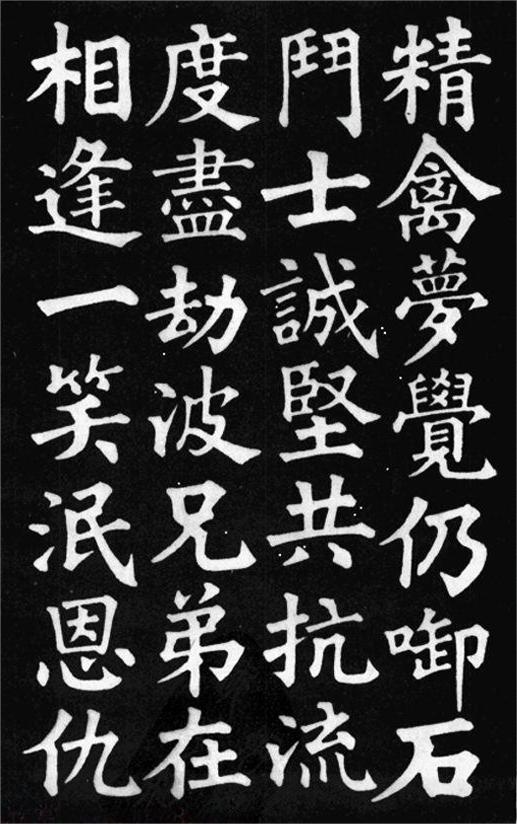 精禽夢覺仍啣石
鬥士誠堅共抗流
度盡劫波兄弟在
相逢一笑泯恩仇